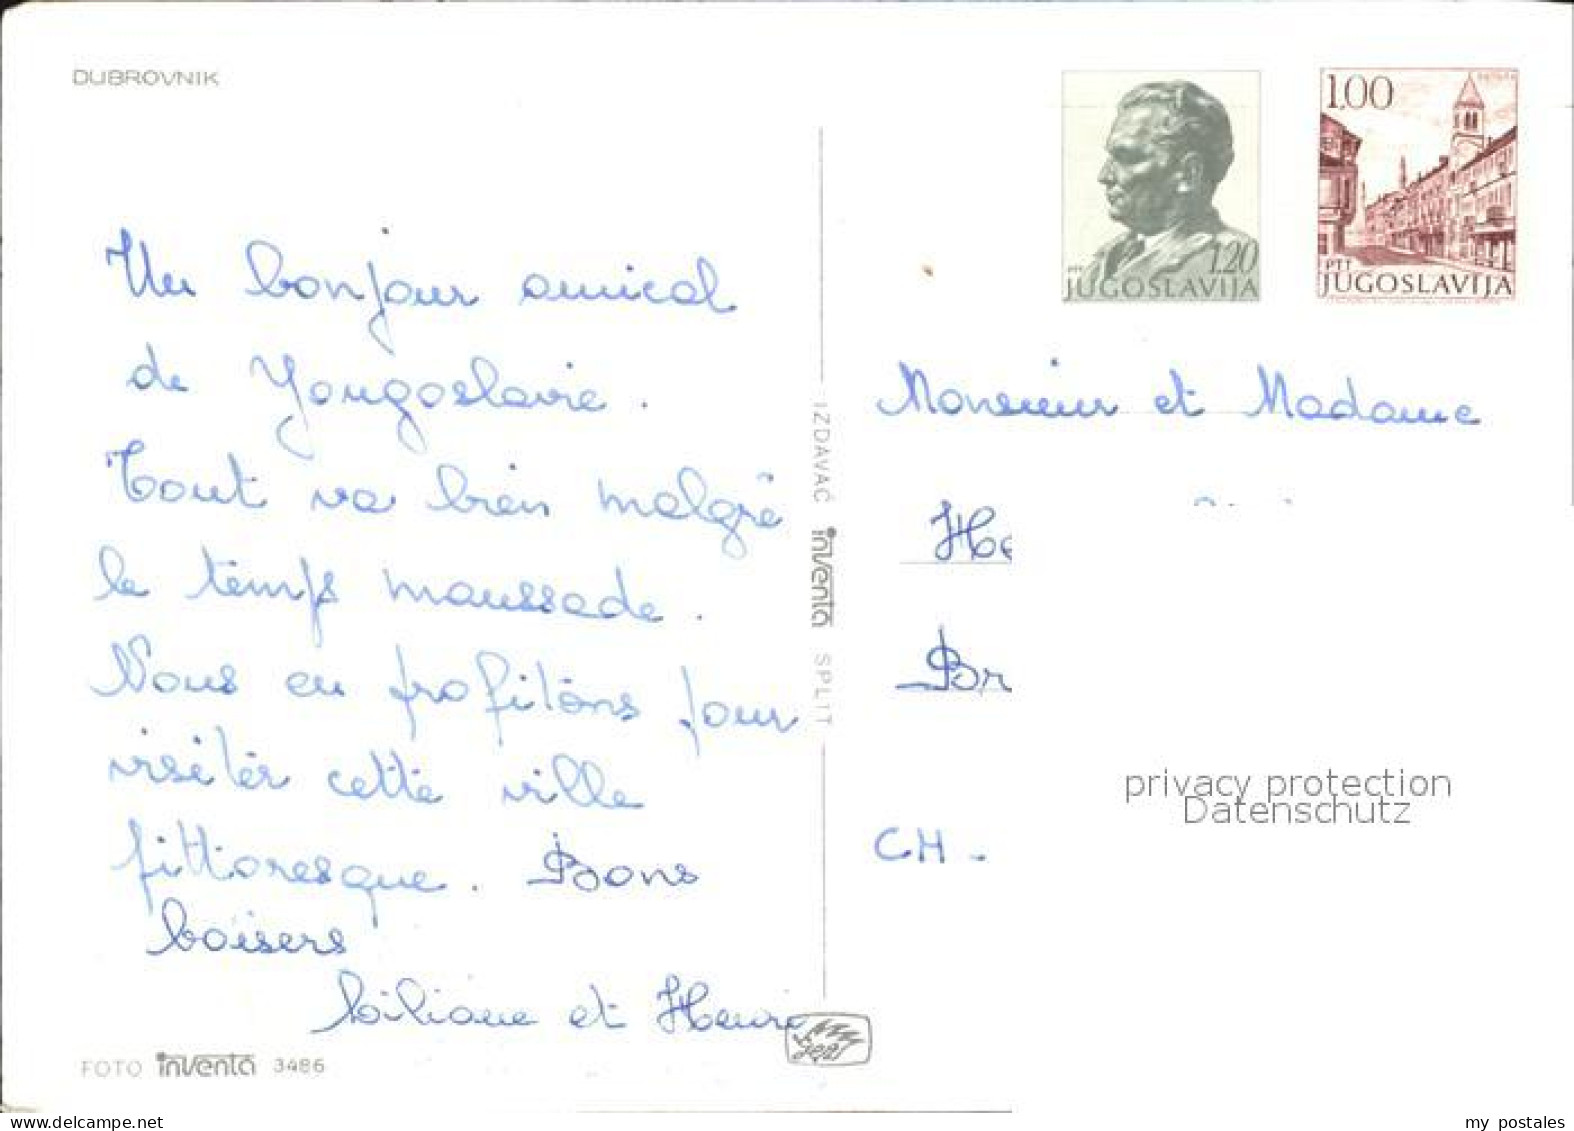 DUBROVNIK
Un bonjour amical
de Yougoslavie.
Tout va bien malgré
le temps maussade.
Nous en profitons pour
visiter cette ville
pittoresque. Bons
baisers
Liliane et Henri
FOTO inventa 3486
IZDAVAČ inventa SPLIT
1.20
PTT
JUGOSLAVIJA
1.00
PTT
JUGOSLAVIJA
Monsieur et Madame
He
Br
CH -
privacy protection
Datenschutz
www.delcampe.net
my postales